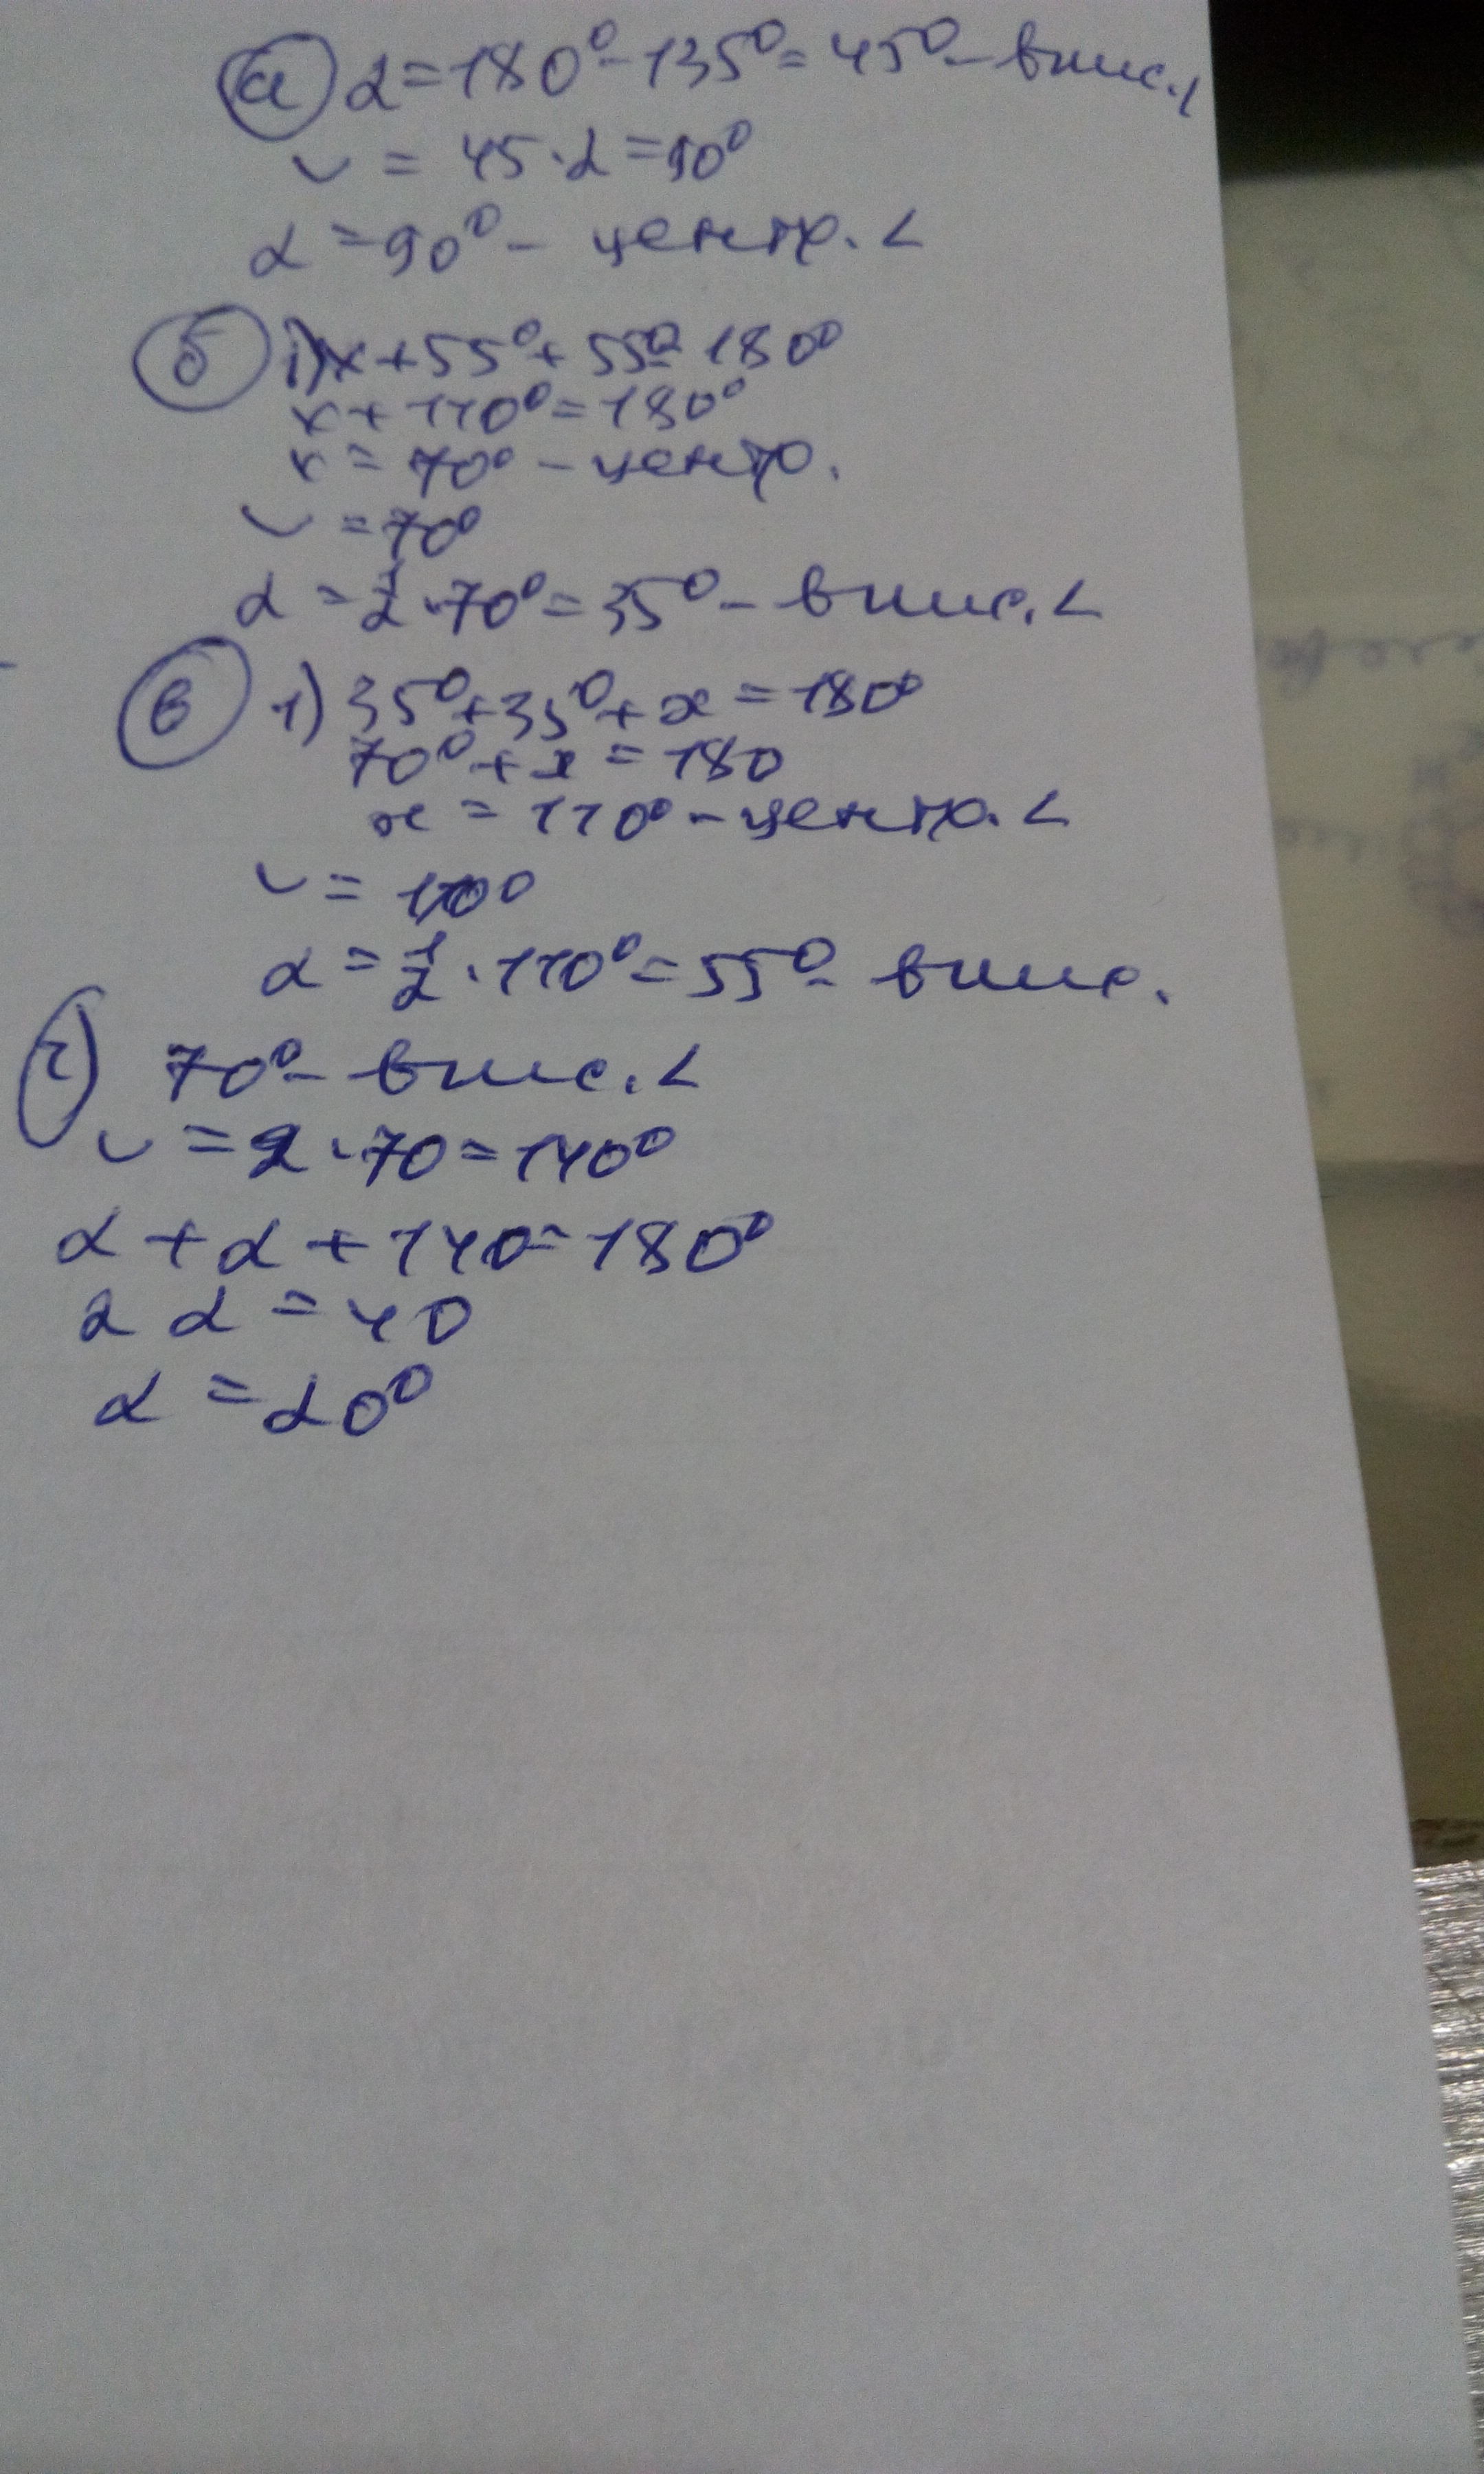 а) α = 180° - 135° = 45° - впис. ∠
◡ = 45 · 2 = 90°
α = 90° - центр. ∠
б) 1) x + 55° + 55° = 180°
x + 110° = 180°
x = 70° - центр.
◡ = 70°
α = 1/2 · 70° = 35° - впис. ∠
в) 1) 35° + 35° + x = 180°
70° + x = 180
x = 110° - центр. ∠
◡ = 110°
α = 1/2 · 110° = 55° - впис.
г) 70° - впис. ∠
◡ = 2 · 70 = 140°
α + α + 140 = 180°
2 α = 40
α = 20°